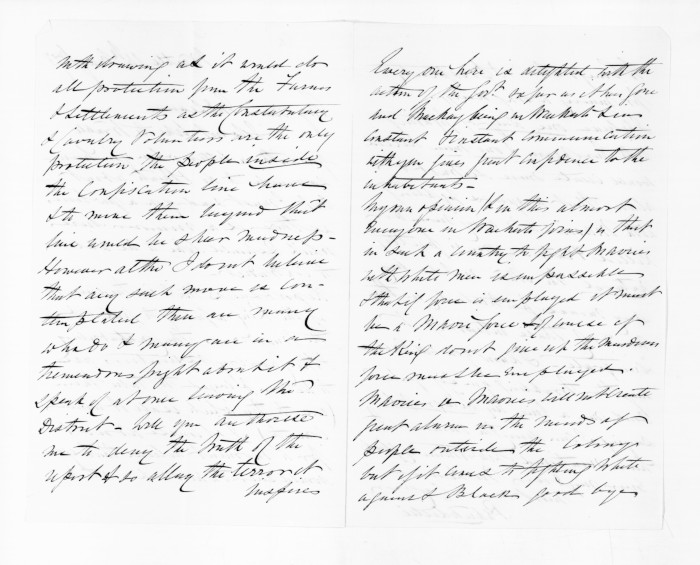 withdrawing as it would do
all protection from the Farms
& Settlements as the Constabulary
& Cavalry Volunteers are the only
protection the people inside
the Confiscation line have
& to move them beyond that
line would be sheer madness -
However altho I do not believe
that any such move is con-
templated there are many
who do & many are in a
tremendous fright about it &
speak of at once leaving the
District - Will you authorise
me to deny the truth of the
report & so allay the terror it
inspires
Every one here is delighted with the
action of the Govt. so far as it has gone
and Mackay being in Waikato & in
constant & instant communication
with you gives great confidence to the
inhabitants -
My own opinion (& in this almost
everyone in Waikato joins) is that
in such a country to fight Maories
with white men is impossible
& that if force is employed it must
be a Maori force & of course if
the King do not give up the murderers
force must be employed.
Maories vs Maories will not create
great alarm in the minds of
people outside the Colony
but if it comes to fighting White
against Black good bye